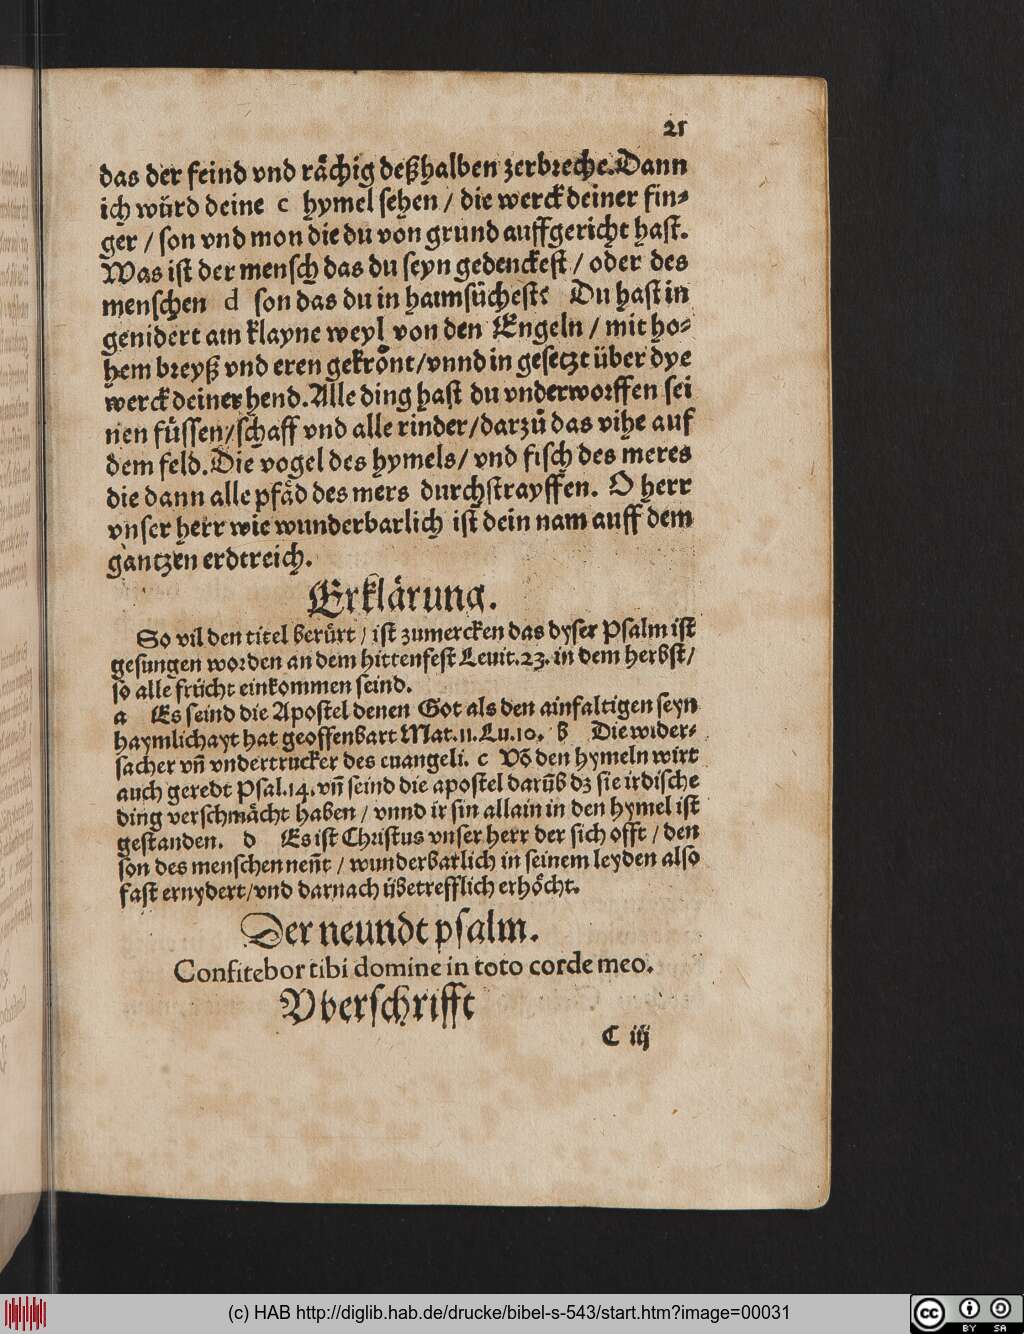 21
das der feind vnd råchig deßhalben zerbreche. Dann
ich wůrd deine c hymel sehen / die werck deiner fin⸗
ger / son vnd mon die du von grund auffgericht hast.
Was ist der mensch das du seyn gedenckest / oder des
menschen d son das du in haimsůchest? Du hast in
genidert ain klayne weyl von den Engeln / mit ho⸗
hem breyß vnd eren gekrőnt / vnnd in gesetzt über dye
werck deiner hend. Alle ding hast du vnderworffen sei
nen fůssen / schaff vnd alle rinder / darzů das vihe auf
dem feld. Die vogel des hymels / vnd fisch des meres
die dann alle pfåd des mers durchstrayffen. O herr
vnser herr wie wunderbarlich ist dein nam auff dem
gantzen erdtreich.
Erklårung.
So vil den titel berůrt / ist zumercken das dyser Psalm ist
gesungen worden an dem hittenfest Leuit. 23. in dem herbst /
so alle frücht einkommen seind.
a Es seind die Apostel denen Got als den ainfaltigen seyn
haymlichayt hat geoffenbart Mat. 11. Lu. 10. b Die wider⸗
sacher vñ vndertrucker des euangeli. c Võ den hymeln wirt
auch geredt Psal. 14. vñ seind die apostel darũb dz sie irdische
ding verschmåcht haben / vnnd ir sin allain in den hymel ist
gestanden. d Es ist Christus vnser herr der sich offt / den
son des menschen neñt / wunderbarlich in seinem leyden also
fast ernydert / vnd darnach übetrefflich erhőcht.
Der neundt psalm.
Confitebor tibi domine in toto corde meo.
Vberschrifft
C iij
(c) HAB http://diglib.hab.de/drucke/bibel-s-543/start.htm?image=00031
cc BY SA